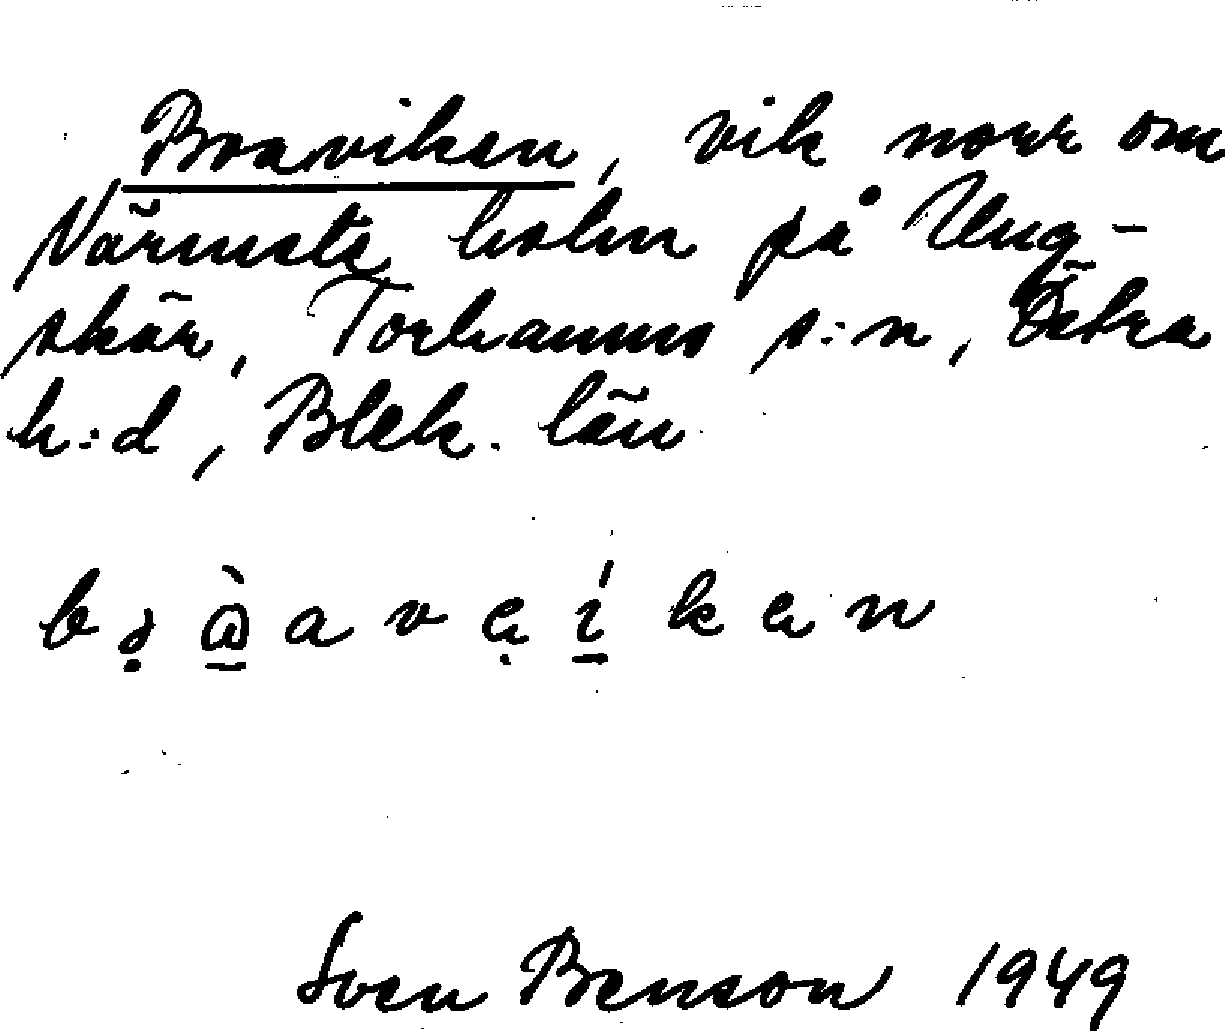 Boaviken, vik norr om
Värmste holm på Ung-
skär, Torhamns s:n, Östra
h:d, Blek. län

Sven Benson 1949